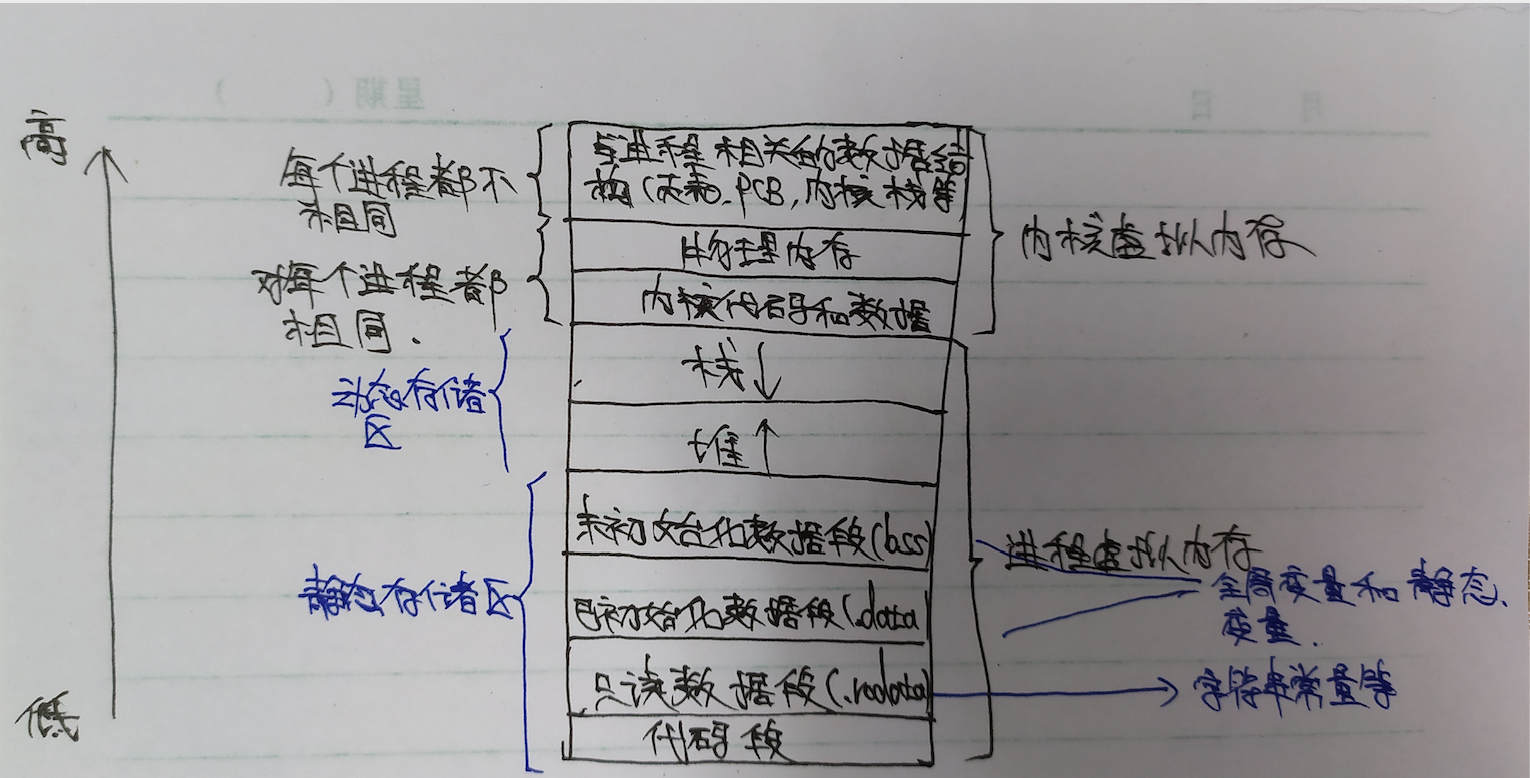 星期（ ）
月 日
高
每个进程都不
相同
与进程相关的数据结
构(页表、PCB,内核栈等
物理内存
对每个进程都
相同.
内核代码和数据
内核虚拟内存
栈↓
动态存储
区
堆↑
未初始化数据段(bss)
进程虚拟内存
静态存储区
已初始化数据段(.data)
全局变量和静态
变量.
只读数据段(.rodata)
字符串常量等
低
代码段